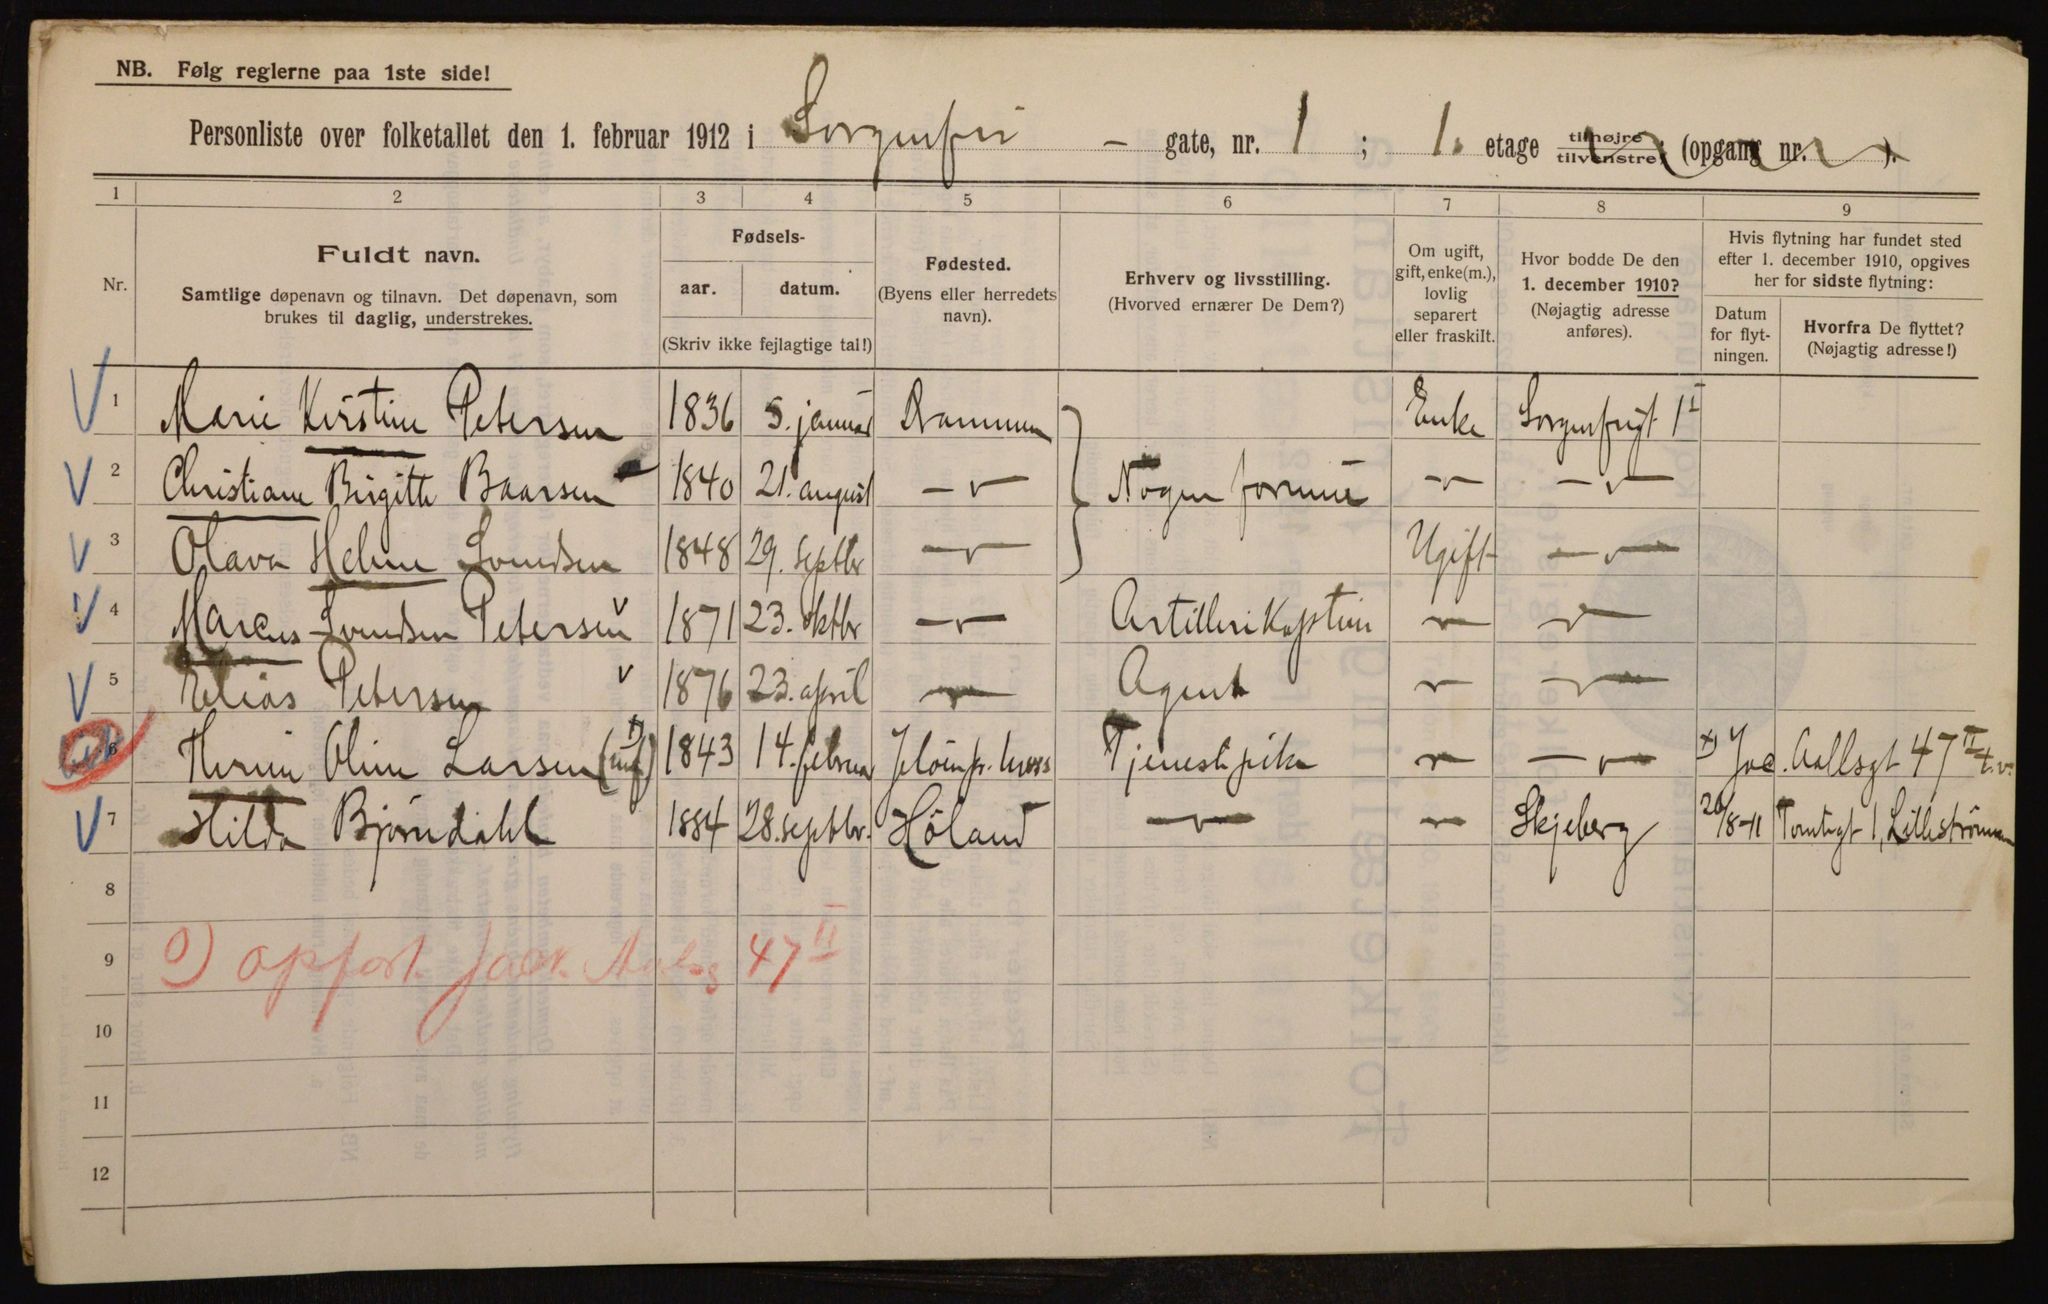 NB. Følg reglerne paa 1ste side!
Personliste over folketallet den 1. februar 1912 i Sorgenfri – gate, nr. 1 ; 1. etage tilhøjre tilvenstre (opgang nr. ).
1 2 3 4 5 6 7 8 9
Nr.
Fuldt navn.
Samtlige døpenavn og tilnavn. Det døpenavn, som
brukes til daglig, understrekes.
Fødsels-
aar. datum.
(Skriv ikke fejlagtige tal!)
Fødested.
(Byens eller herredets
navn).
Erhverv og livsstilling.
(Hvorved ernærer De Dem?)
Om ugift,
gift, enke(m.),
lovlig
separert
eller fraskilt.
Hvor bodde De den
1. december 1910?
(Nøjagtig adresse
anføres).
Hvis flytning har fundet sted
efter 1. december 1910, opgives
her for sidste flytning:
Datum
for flyt-
ningen.
Hvorfra De flyttet?
(Nøjagtig adresse!)
1 Marie Kirstine Petersen 1836 5. januar Drammen Enke Sorgenfrigt 1 I
2 Christiane Birgitte Baarsen 1840 21. august Nogen formue
3 Olava Helene Svendsen 1848 29. septbr Ugift
4 Marcus Svendsen Petersen 1871 23. oktbr Artillerikaptein
5 Elias Petersen 1876 23. april Agent
6 Oline Larsen 1843 14. februar Moss Tjenestepike x) Jac. Aallsgt 47 II t.v.
7 Hilda Bjørndahl 1884 28. septbr. Høland Skjeberg 20/8-11 Tomtegt 1, Lillestrømmen
8
9 opført Jac. Aalsg 47 II
10
11
12